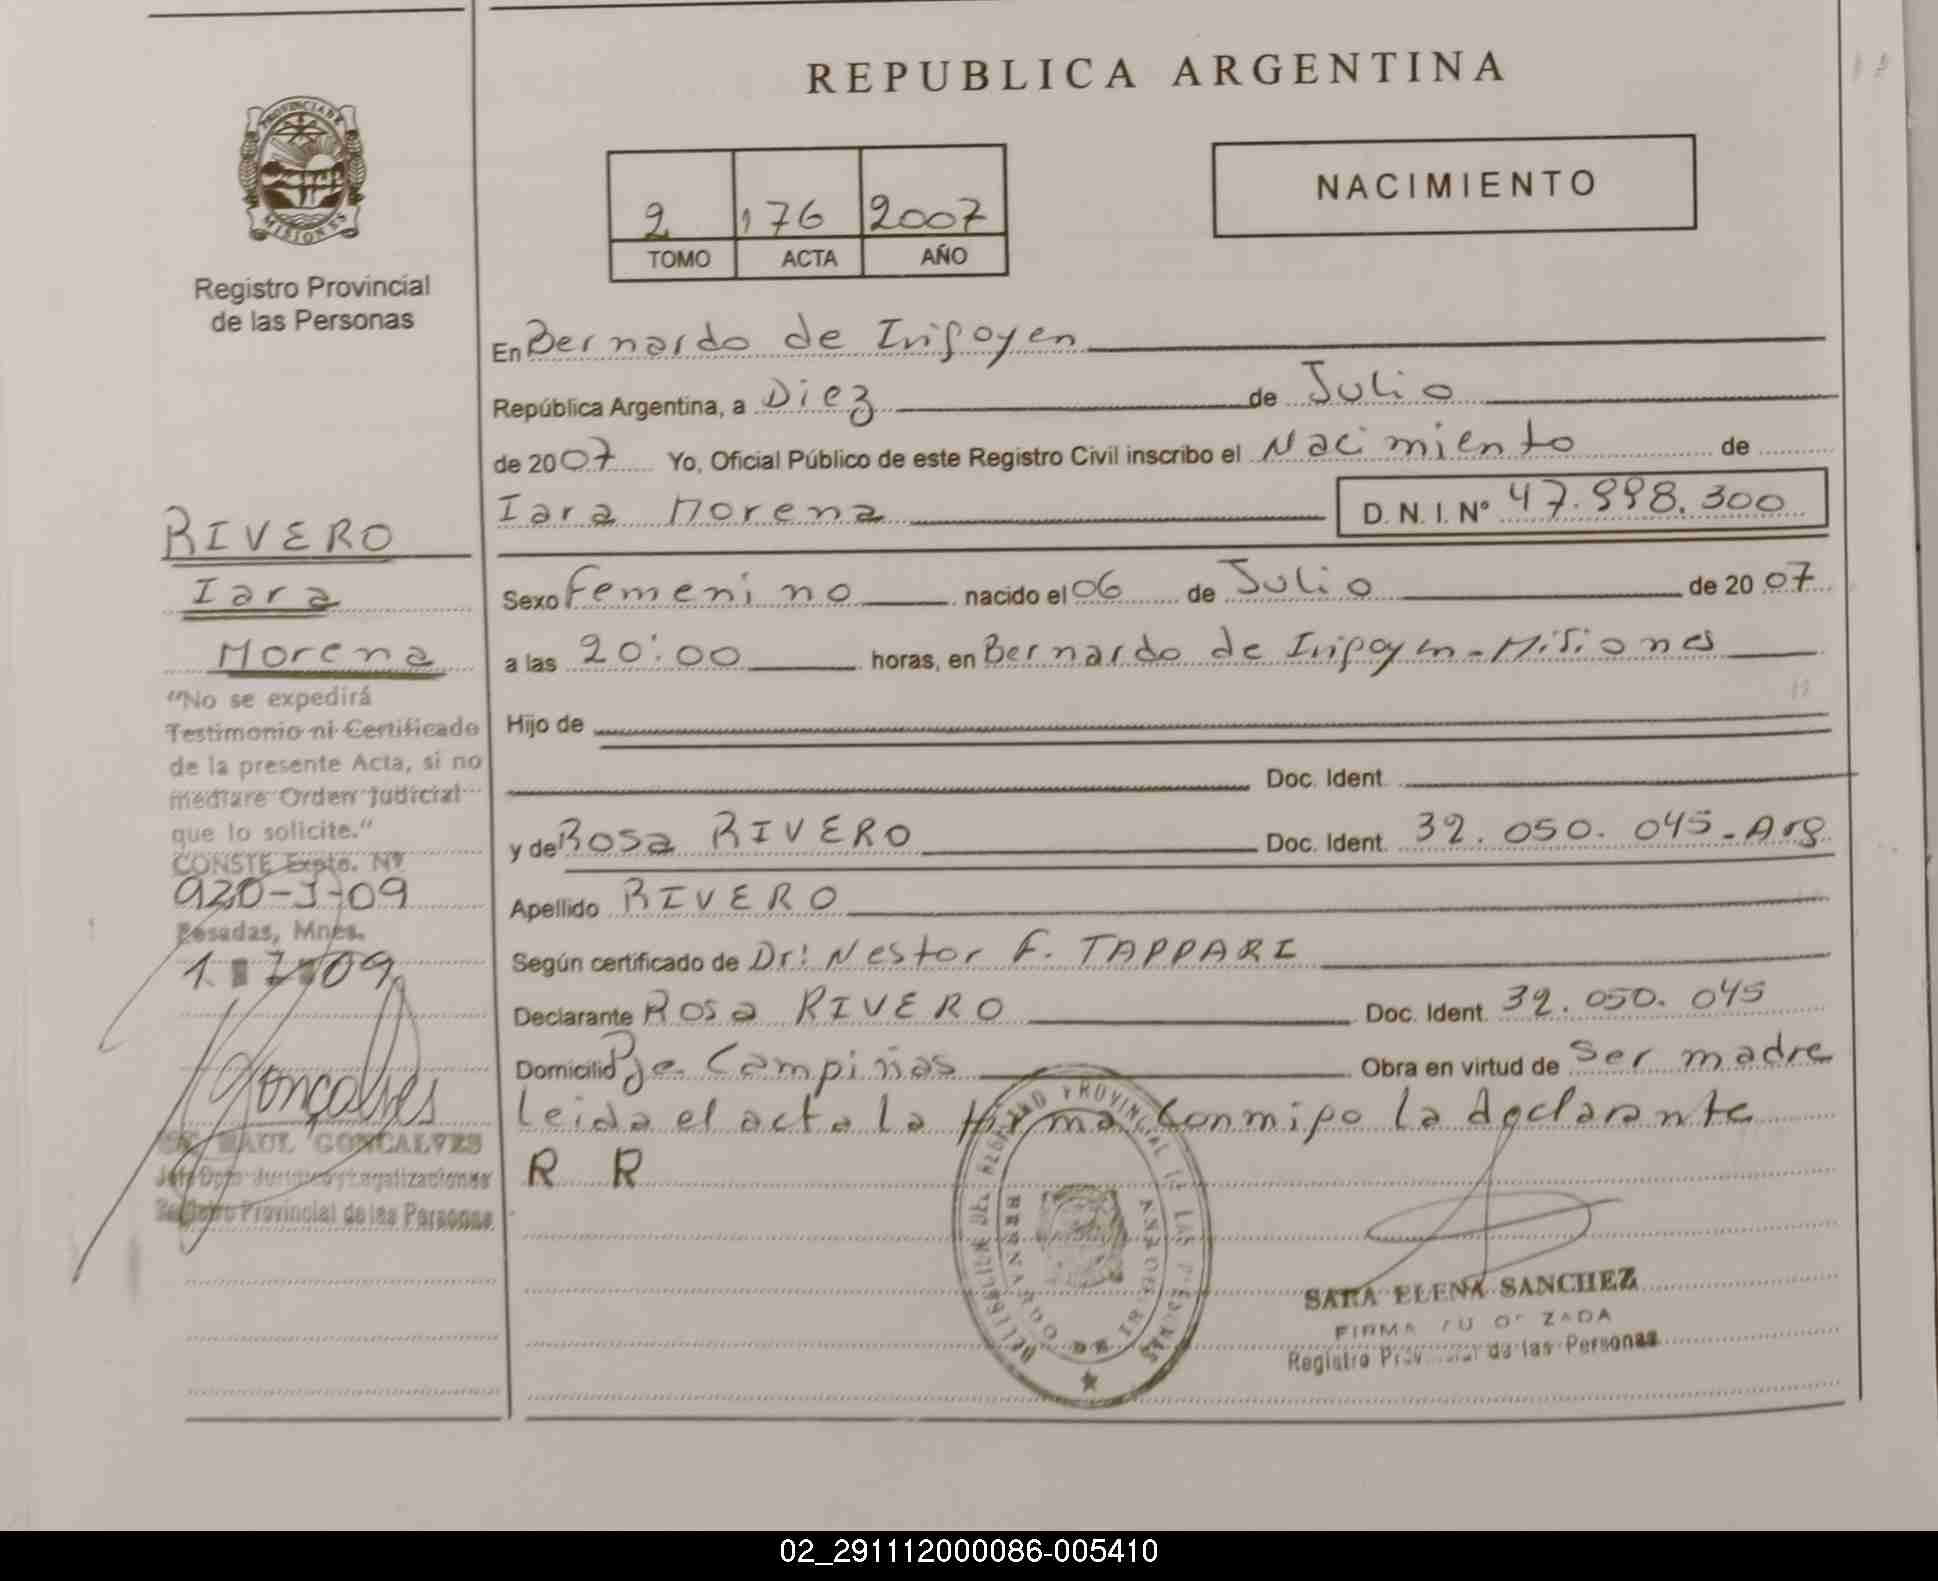 REPUBLICA ARGENTINA
PROVINCIA DE
MISIONES
Registro Provincial
de las Personas
2 176 2007
TOMO ACTA AÑO
NACIMIENTO
En Bernardo de Irigoyen
República Argentina, a Diez de Julio
de 2007 Yo, Oficial Público de este Registro Civil inscribo el Nacimiento de
Iara Morena D. N. I. Nº 47.998.300
RIVERO
Iara
Morena
Sexo Femenino nacido el 06 de Julio de 2007
a las 20:00 horas, en Bernardo de Irigoyen - Misiones
Hijo de
Doc. Ident.
y de Rosa RIVERO Doc. Ident. 32.050.045 - Arg
Apellido RIVERO
Según certificado de Dr: Nestor F. TAPPARI
Declarante Rosa RIVERO Doc. Ident. 32.050.045
Domicilio Pje. Campiñas Obra en virtud de Ser madre
Leida el acta la firma conmigo la declarante
R R
"No se expedirá
Testimonio ni Certificado
de la presente Acta, si no
mediare Orden Judicial
que lo solicite."
CONSTE Expte. Nº
920-J-09
Posadas, Mnes.
1 7 09
Gonçalves
RAUL GONCALVES
Jefe Dpto Jurídico y Legalizaciones
Registro Provincial de las Personas
SARA ELENA SANCHEZ
FIRMA AUTORIZADA
Registro Provincial de las Personas
02_291112000086-005410